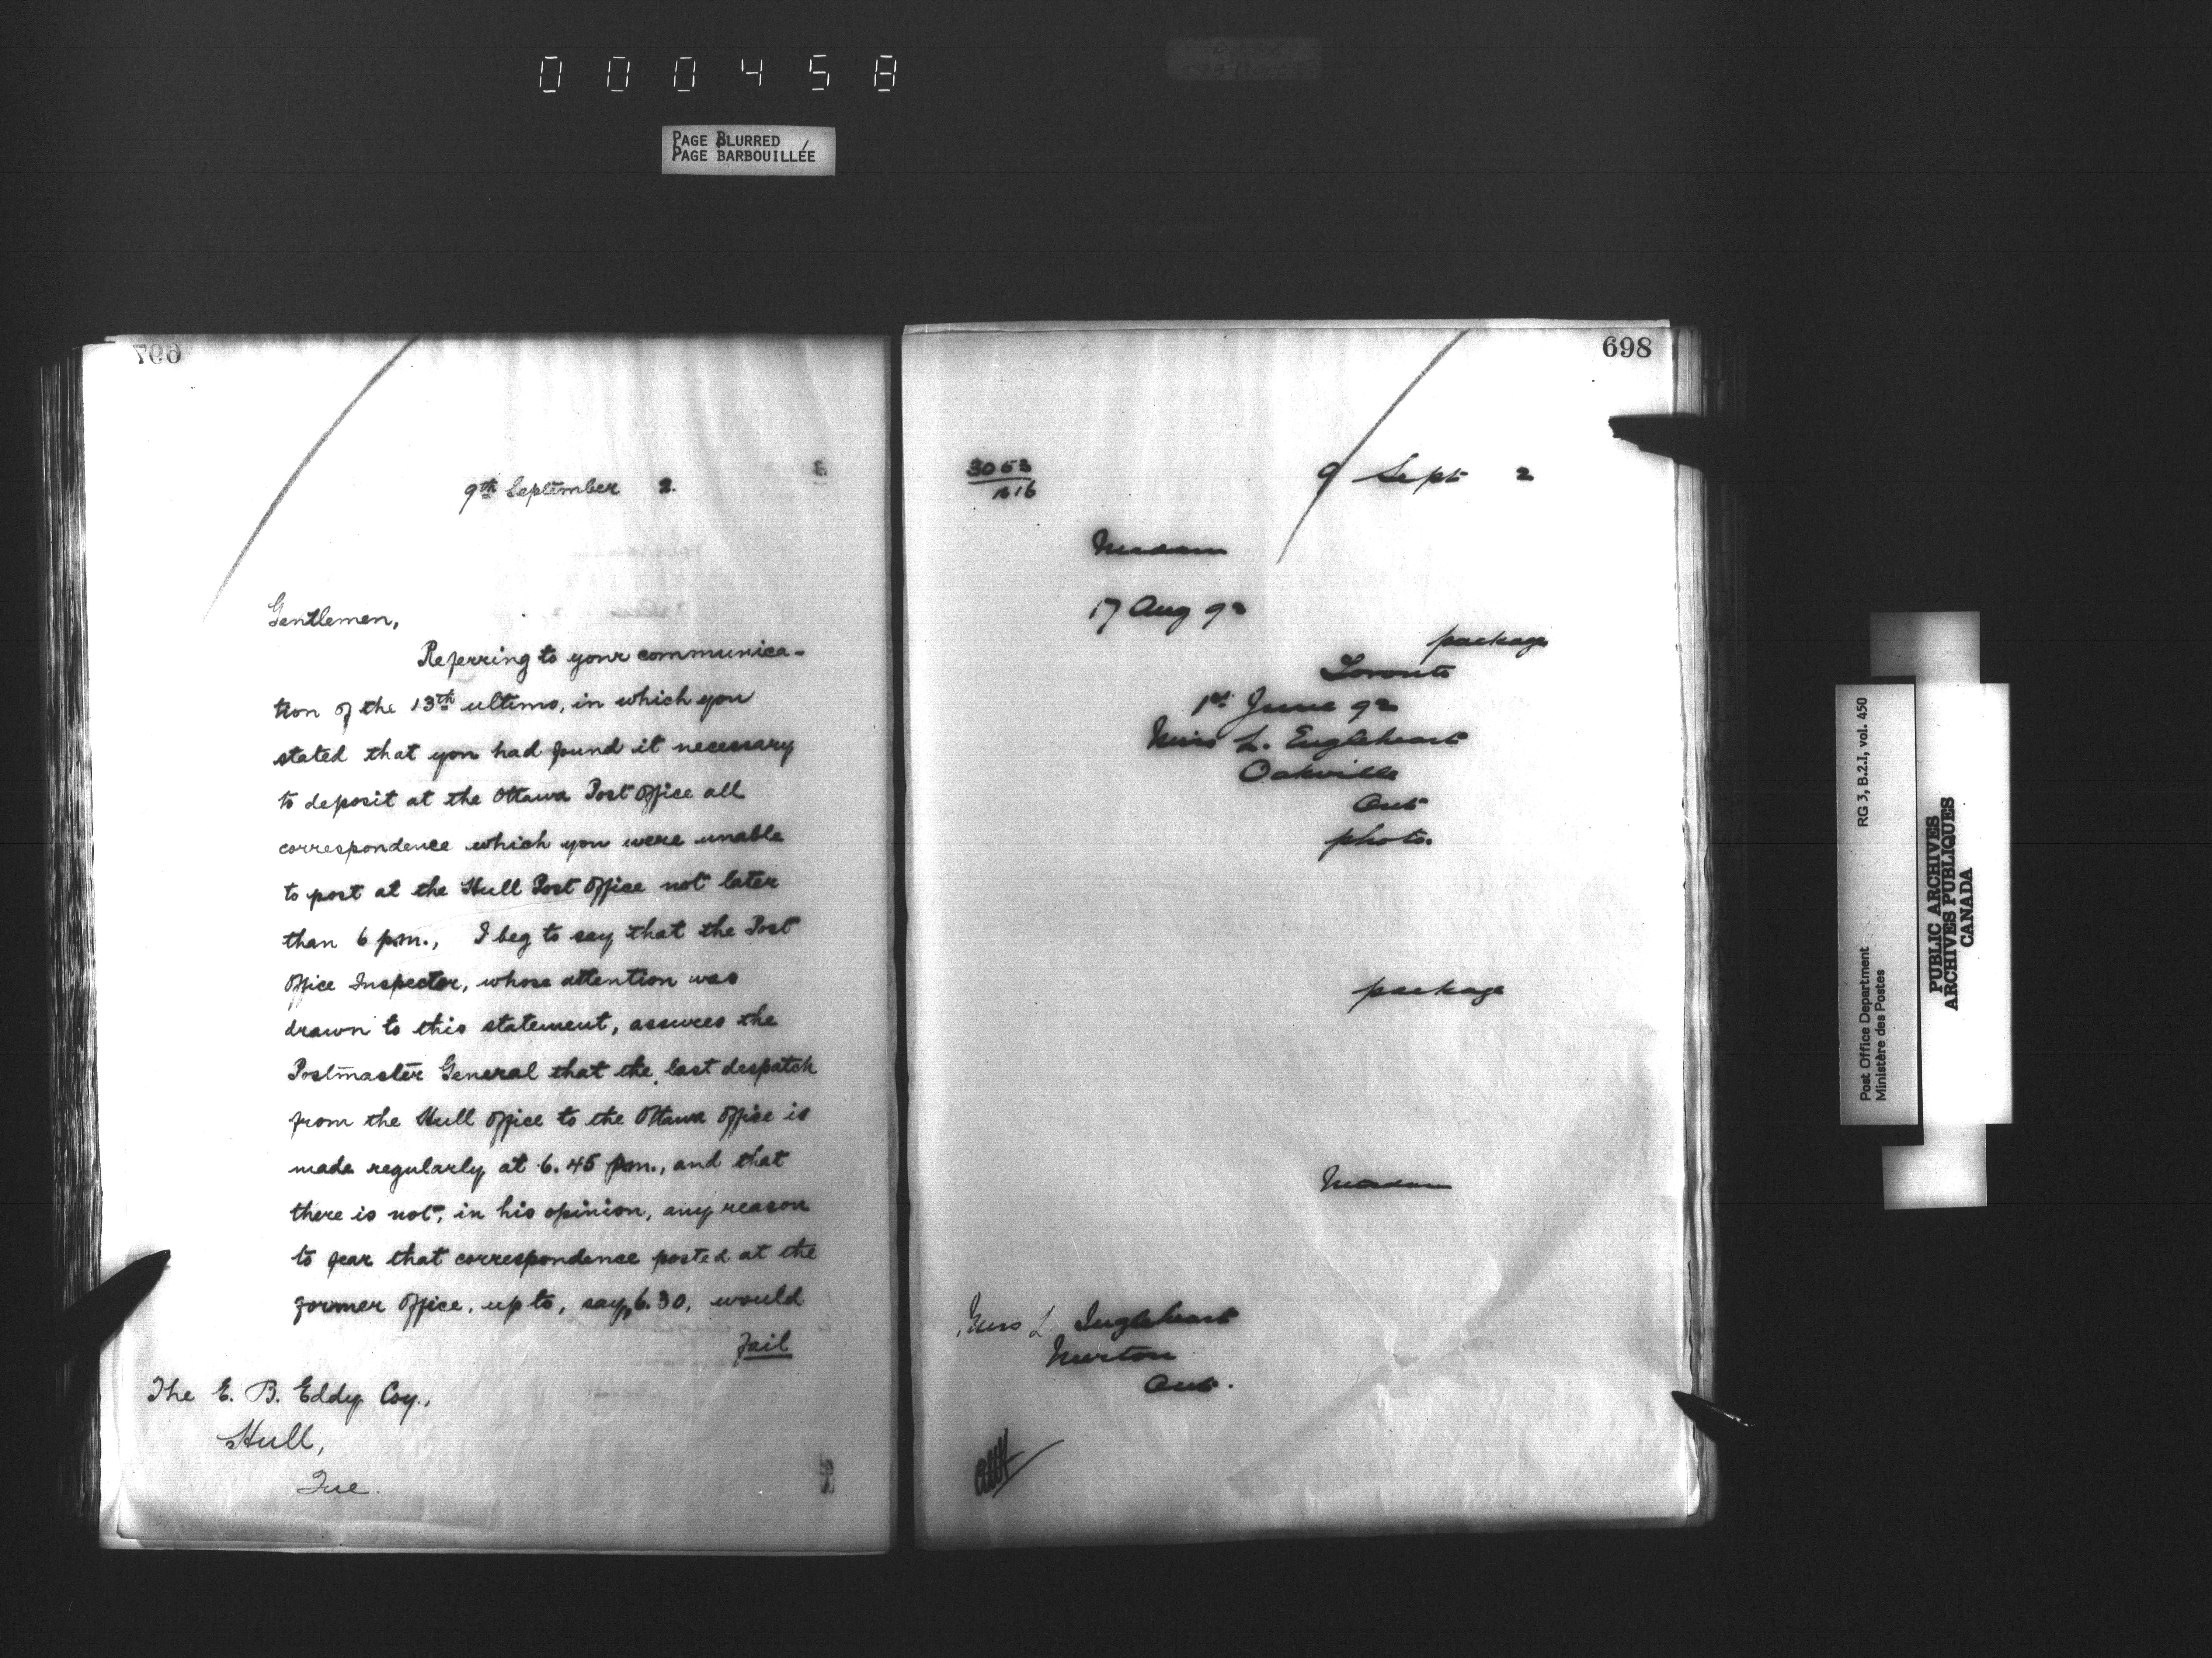 000458
PAGE BLURRED
PAGE BARBOUILLÉE
697
9th September 2.
Gentlemen,
Referring to your communica-
tion of the 13th ultimo, in which you
stated that you had found it necessary
to deposit at the Ottawa Post Office all
correspondence which you were unable
to post at the Hull Post Office not later
than 6 p.m., I beg to say that the Post
Office Inspector, whose attention was
drawn to this statement, assures the
Postmaster General that the last despatch
from the Hull Office to the Ottawa Office is
made regularly at 6.45 p.m., and that
there is not, in his opinion, any reason
to fear that correspondence posted at the
former Office, up to, say, 6.30, would
fail
The E. B. Eddy Coy.,
Hull,
Que.
698
3053
9 Sept 2
Madam
17 Aug 92
package
Toronto
1st June 92
Miss L. Engleheart
Oakville
Ont
photo.
package
Madam
Miss L. Ingleheart
Merton
Ont.
Post Office Department RG 3, B.2.I, vol. 450
Ministère des Postes
PUBLIC ARCHIVES
ARCHIVES PUBLIQUES
CANADA